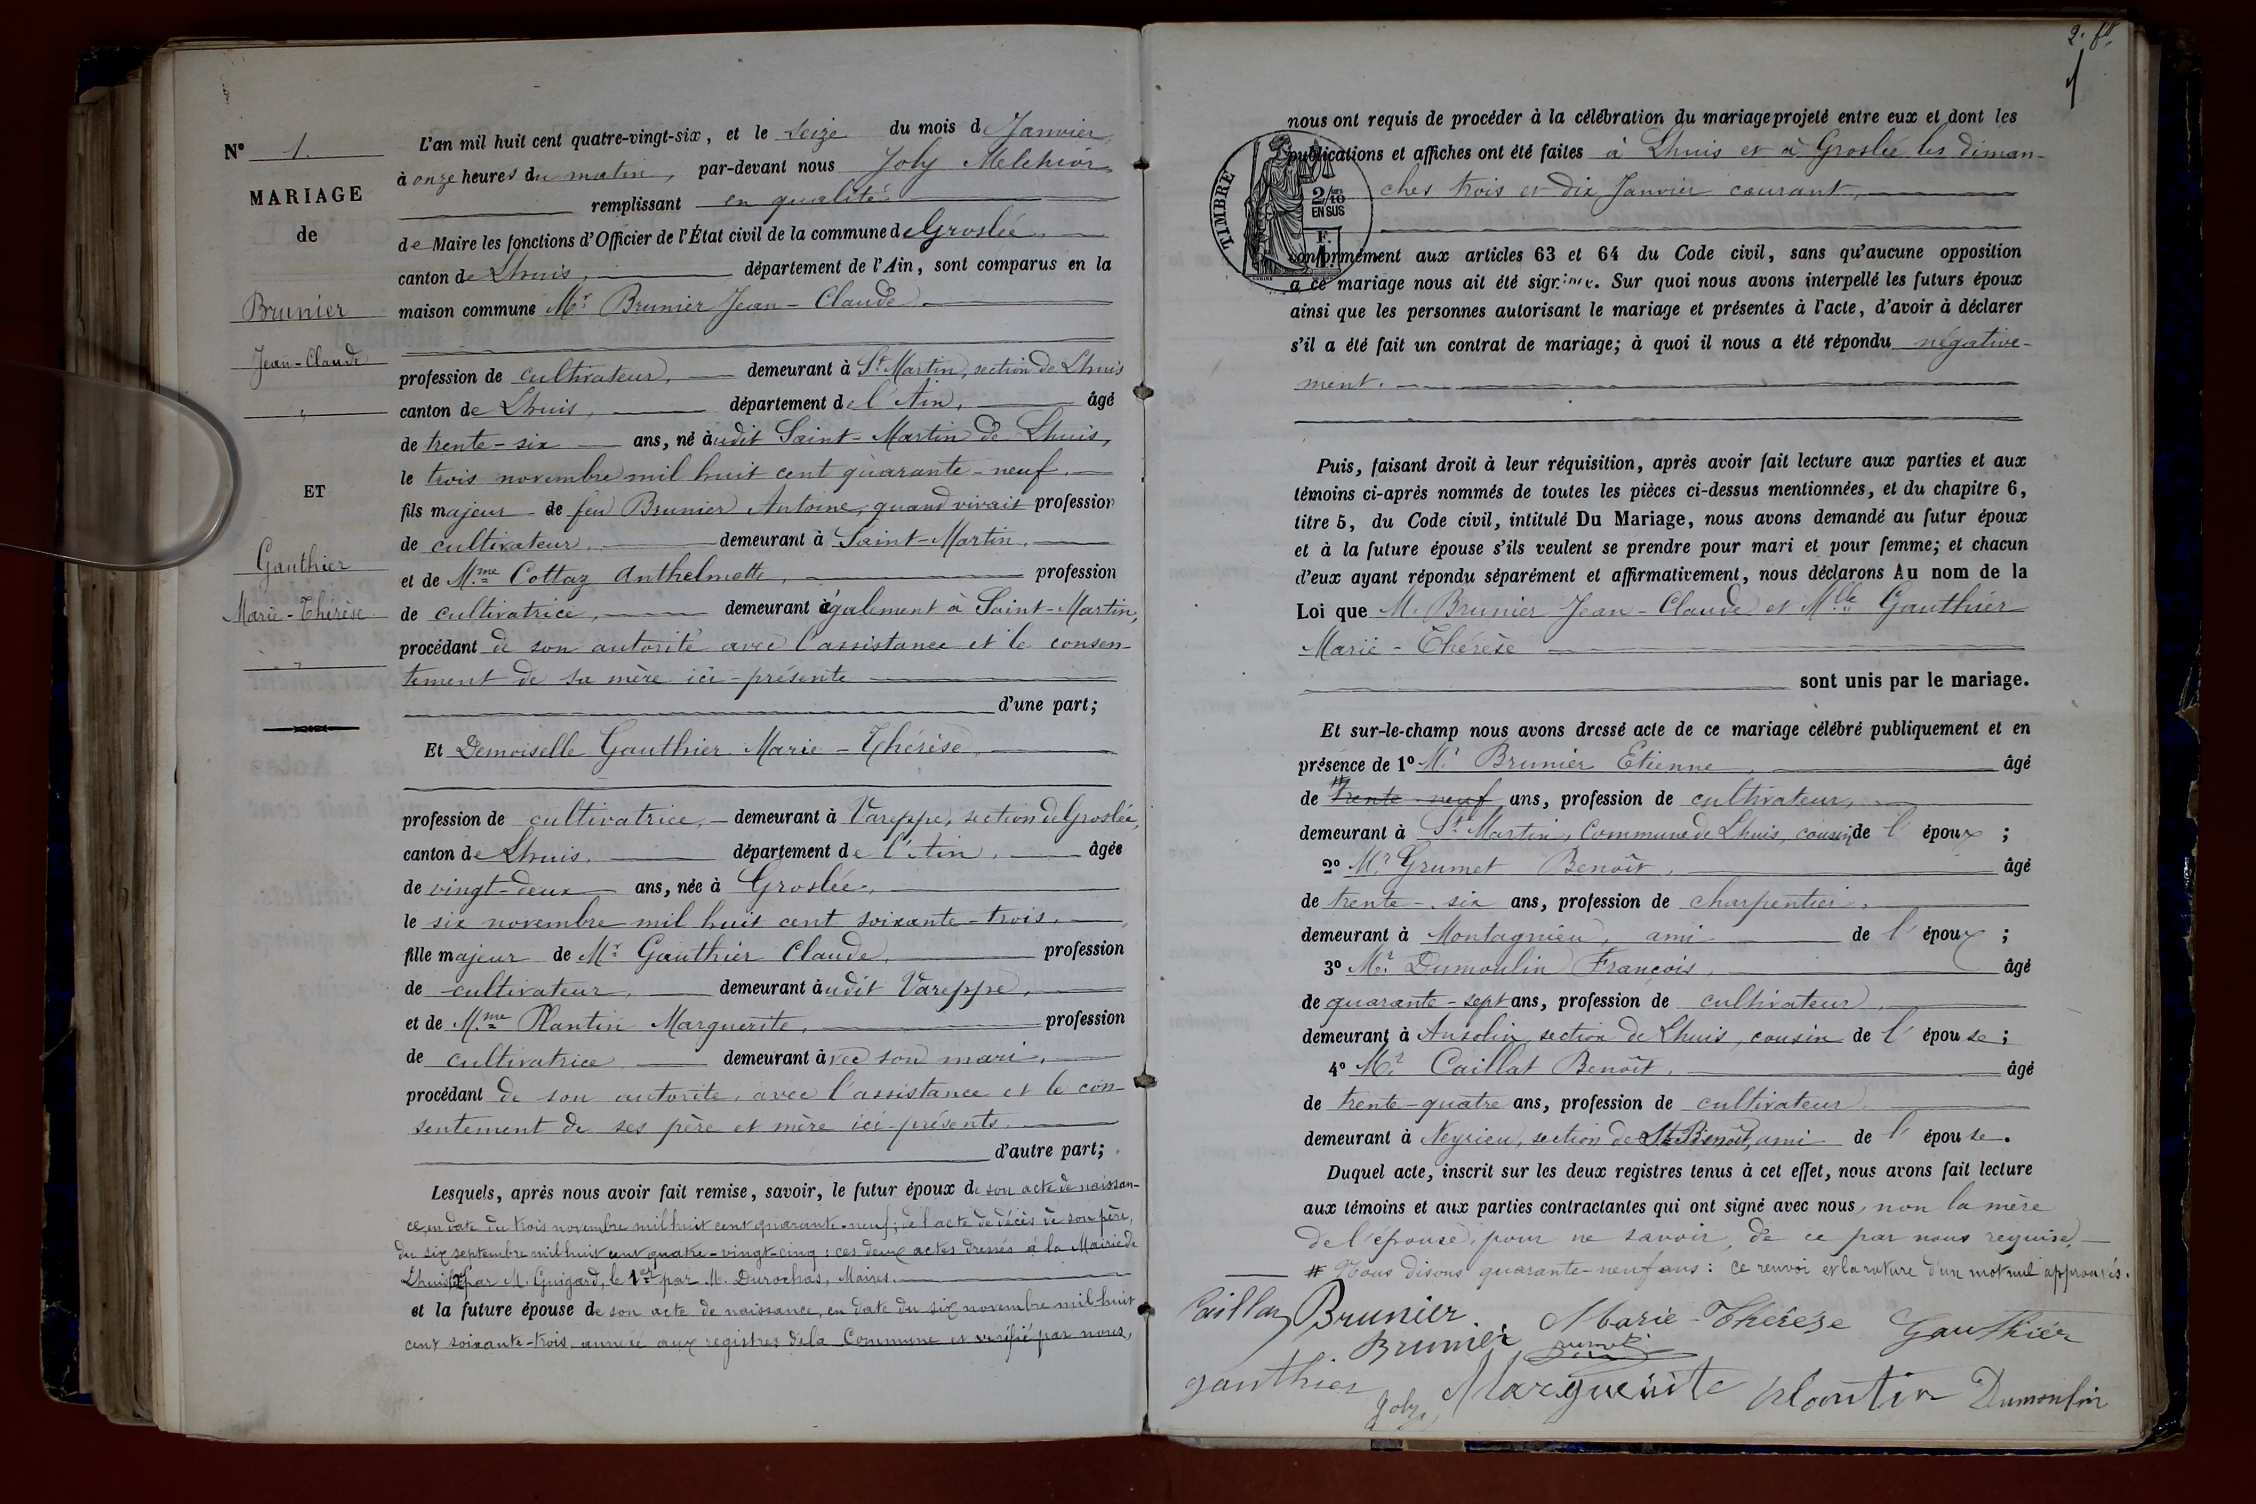 N° 1.
MARIAGE
de
Brunier
Jean-Claude
"
ET
Gauthier
Marie-Thérèse
"
L'an mil huit cent quatre-vingt-six, et le seize du mois d Janvier,
à onze heures du matin, par-devant nous Joly Melchior
remplissant en qualité
de Maire les fonctions d'Officier de l'État civil de la commune de Groslée,
canton de Lhuis, département de l'Ain, sont comparus en la
maison commune Mr. Brunier Jean-Claude
profession de cultivateur, demeurant à St Martin, section de Lhuis
canton de Lhuis, département de l'Ain, âgé
de trente-six ans, né àudit Saint-Martin de Lhuis,
le trois novembre mil huit cent quarante-neuf,
fils majeur de feu Brunier Antoine, quand vivait profession
de cultivateur, demeurant à Saint-Martin,
et de Mme Cottaz Anthelmette, profession
de cultivatrice, demeurant également à Saint-Martin,
procédant de son autorité avec l'assistance et le consen-
tement de sa mère ici-présente
d'une part;
Et Demoiselle Gauthier Marie-Thérèse,
profession de cultivatrice, demeurant à Vareppe, section de Groslée,
canton de Lhuis, département de l'Ain, âgée
de vingt-deux ans, née à Groslée,
le six novembre mil huit cent soixante-trois,
fille majeur de Mr Gauthier Claude, profession
de cultivateur, demeurant àudit Vareppe,
et de Mme Plantin Marguerite, profession
de cultivatrice demeurant àvec son mari,
procédant de son autorité, avec l'assistance et le con-
sentement de ses père et mère ici-présents
d'autre part;
Lesquels, après nous avoir fait remise, savoir, le futur époux de son acte de naissan-
ce, en date du trois novembre mil huit cent quarante-neuf; de l'acte de décès de son père,
du six septembre mil huit cent quatre-vingt-cinq: ces deux actes dressés à la Mairie de
Lhuis, par M. Guigard, le 1er par M. Durochas, Maires.
et la future épouse de son acte de naissance, en date du six novembre mil huit
cent soixante-trois annexé aux registres de la Commune et vérifié par nous,
2. ft.
1
TIMBRE
2/10
EN SUS
F.
nous ont requis de procéder à la célébration du mariage projeté entre eux et dont les
publications et affiches ont été faites à Lhuis et à Groslée les diman-
ches trois et dix Janvier courant,
conformément aux articles 63 et 64 du Code civil, sans qu'aucune opposition
à ce mariage nous ait été signifiée. Sur quoi nous avons interpellé les futurs époux
ainsi que les personnes autorisant le mariage et présentes à l'acte, d'avoir à déclarer
s'il a été fait un contrat de mariage; à quoi il nous a été répondu négative-
ment.
Puis, faisant droit à leur réquisition, après avoir fait lecture aux parties et aux
témoins ci-après nommés de toutes les pièces ci-dessus mentionnées, et du chapitre 6,
titre 5, du Code civil, intitulé Du Mariage, nous avons demandé au futur époux
et à la future épouse s'ils veulent se prendre pour mari et pour femme; et chacun
d'eux ayant répondu séparément et affirmativement, nous déclarons Au nom de la
Loi que M. Brunier Jean-Claude et Mlle Gauthier
Marie-Thérèse
sont unis par le mariage.
Et sur-le-champ nous avons dressé acte de ce mariage célébré publiquement et en
présence de 1° Mr Brunier Etienne, âgé
de # trente-neuf ans, profession de cultivateur,
demeurant à St Martin, Commune de Lhuis, cousin de l'époux;
2° Mr Grumet Benoît, âgé
de trente-six ans, profession de charpentier,
demeurant à Montagnieu, ami de l'époux;
3° Mr. Dumoulin François, âgé
de quarante-sept ans, profession de cultivateur,
demeurant à Ansolin, section de Lhuis, cousin de l'épouse;
4° Mr Caillat Benoît, âgé
de trente-quatre ans, profession de cultivateur
demeurant à Neyrieu, section de St Benoît, ami de l'épouse.
Duquel acte, inscrit sur les deux registres tenus à cet effet, nous avons fait lecture
aux témoins et aux parties contractantes qui ont signé avec nous, non la mère
de l'épouse, pour ne savoir, de ce par nous requise,
# Nous disons quarante-neuf ans: ce renvoi et la rature d'un mot nul approuvés.
Caillat Brunier Marie-Thérèze Gauthier
Brunier
gauthier Joly Marguerite plantin Dumoulin